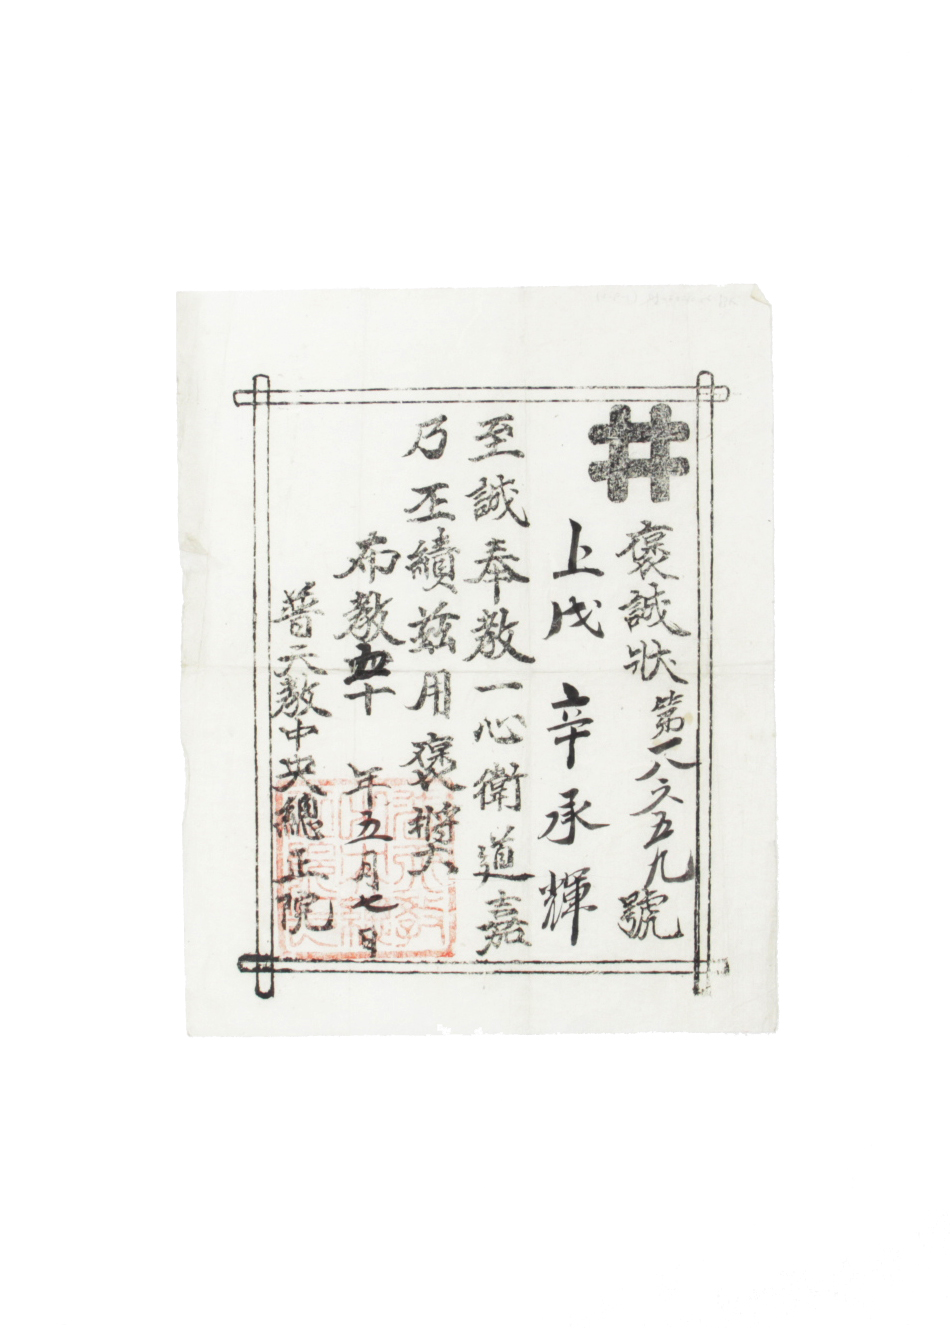 褒誠狀 第一八六五九號
上戊 辛承輝
至誠奉教一心衛道嘉
乃丕績茲用褒奬
布教五十年五月七日
普天教中央總正院